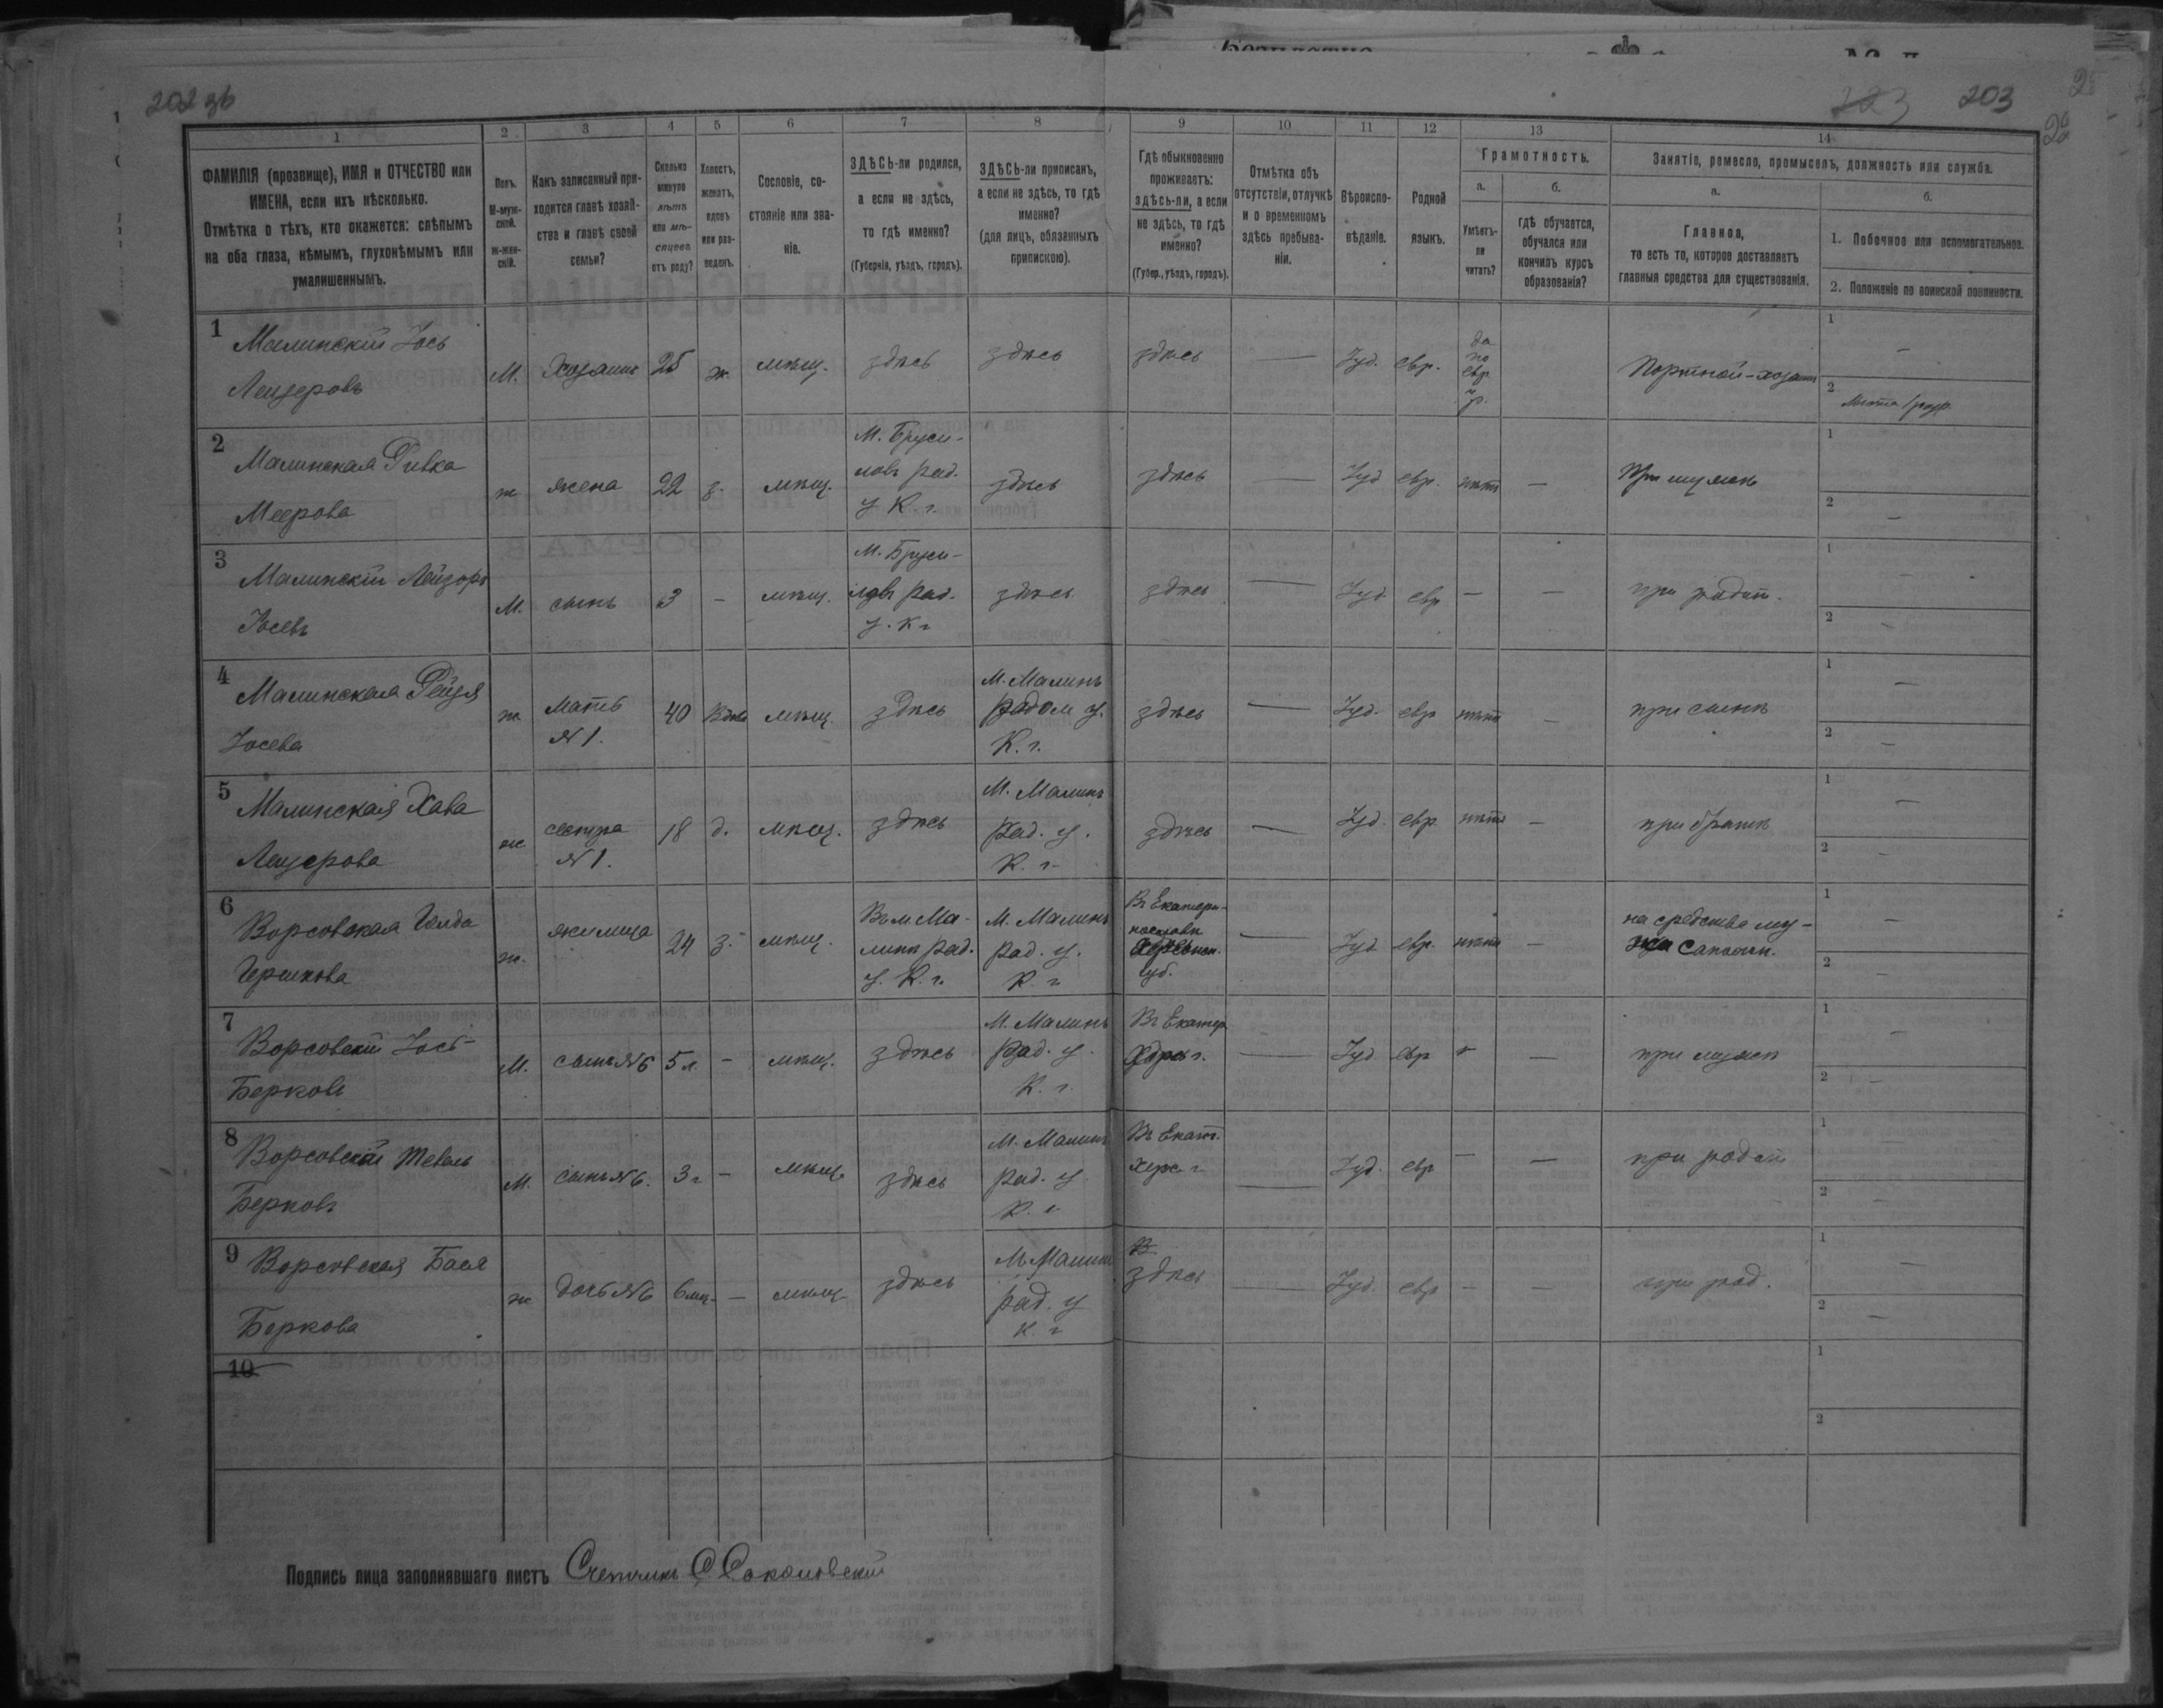 202 об
223 203
1 2 3 4 5 6 7 8 9 10 11 12 13 14
ФАМИЛІЯ (прозвище), ИМЯ и ОТЧЕСТВО или
ИМЕНА, если ихъ нѣсколько.
Отмѣтка о тѣхъ, кто окажется: слѣпымъ
на оба глаза, нѣмымъ, глухонѣмымъ или
умалишеннымъ.
Полъ.
М-муж-
ской.
Ж-жен-
скій.
Какъ записанный при-
ходится главѣ хозяй-
ства и главѣ своей
семьи?
Сколько
минуло
лѣтъ
или мѣ-
сяцевъ
отъ роду?
Холостъ,
женатъ,
вдовъ
или раз-
веденъ.
Сословіе, со-
стояніе или зва-
ніе.
ЗДѢСЬ-ли родился,
а если не здѣсь,
то гдѣ именно?
(Губернія, уѣздъ, городъ).
ЗДѢСЬ-ли приписанъ,
а если не здѣсь, то гдѣ
именно?
(для лицъ, обязанныхъ
припискою).
Гдѣ обыкновенно
проживаетъ:
здѣсь-ли, а если
не здѣсь, то гдѣ
именно?
(Губер., уѣздъ, городъ).
Отмѣтка объ
отсутствіи, отлучкѣ
и о временномъ
здѣсь пребыва-
ніи.
Вѣроиспо-
вѣданіе.
Родной
языкъ.
Грамотность.
а.
Умѣетъ-
ли
читать?
б.
гдѣ обучается,
обучался или
кончилъ курсъ
образованія?
Занятіе, ремесло, промыселъ, должность или служба.
а.
Главное,
то есть то, которое доставляетъ
главныя средства для существованія.
б.
1. Побочное или вспомогательное.
2. Положеніе по воинской повинности.
1 Малинскій Іось
Лейзеровъ
М. Хозяинъ 25 ж. мѣщ. здѣсь здѣсь здѣсь — Іуд. евр.
да
по
евр
Портной-хозяин
1 —
2
2 Малинская Ривка
Меерова
ж жена 22 з. мѣщ.
М. Бруси-
ловъ рад.
у К. г.
здѣсь здѣсь — Іуд евр. нѣтъ — При мужѣ
1
2 —
3 Малинскій Лейзоръ
Іосевъ
М. сынъ 3 — мѣщ.
М. Бруси-
ловъ рад.
у. К г
здѣсь здѣсь — Іуд евр — — при родит.
1 —
2 —
4 Малинская Рейзя
Іосева
ж мать
№ 1.
40 Вдова мѣщ. здѣсь
М. Малинъ
Радом у.
К. г.
здѣсь — Іуд. евр нѣтъ — при сынѣ
1 —
2 —
5 Малинская Хава
Лейзерова
ж сестра
№ 1.
18 д. мѣщ. здѣсь
М. Малинъ
Рад. у.
К. г.
здѣсь — Іуд. евр нѣтъ — при братѣ
1 —
2 —
6 Ворсовская Голда
Гершкова
ж. жилица 24 з. мѣщ.
Въ м Ма-
линѣ рад.
у. К. г.
М. Малинъ
рад. у.
К. г
Въ Екатери-
нославѣ
Херсонск.
губ.
— Іуд евр. нѣтъ —
на средства му-
жа Сапожн.
1 —
2 —
7 Ворсовскій Іось-
Берковъ
М. сынъ №6 5 л. — мѣщ. здѣсь
М. Малинъ
рад. у.
К. г.
Въ Екатер
Херс г.
— Іуд евр — при мужѣ
1 —
2 —
8 Ворсовскій Тевель
Берковъ
М. сынъ №6. 3 г — мѣщ здѣсь
М. Малинъ
рад. у
К. г
Въ Екат.
херс г
— Іуд. евр — — при родит
1 —
2 —
9 Ворсовская Бася
Беркова
ж дочь №6 6 мц. — мѣщ здѣсь
М. Малинъ
рад. у
К. г
В
здѣсь
— Іуд. евр — — при род.
1 —
2 —
10
1
2
Подпись лица заполнявшаго листъ Счетчикъ С Соколовскій